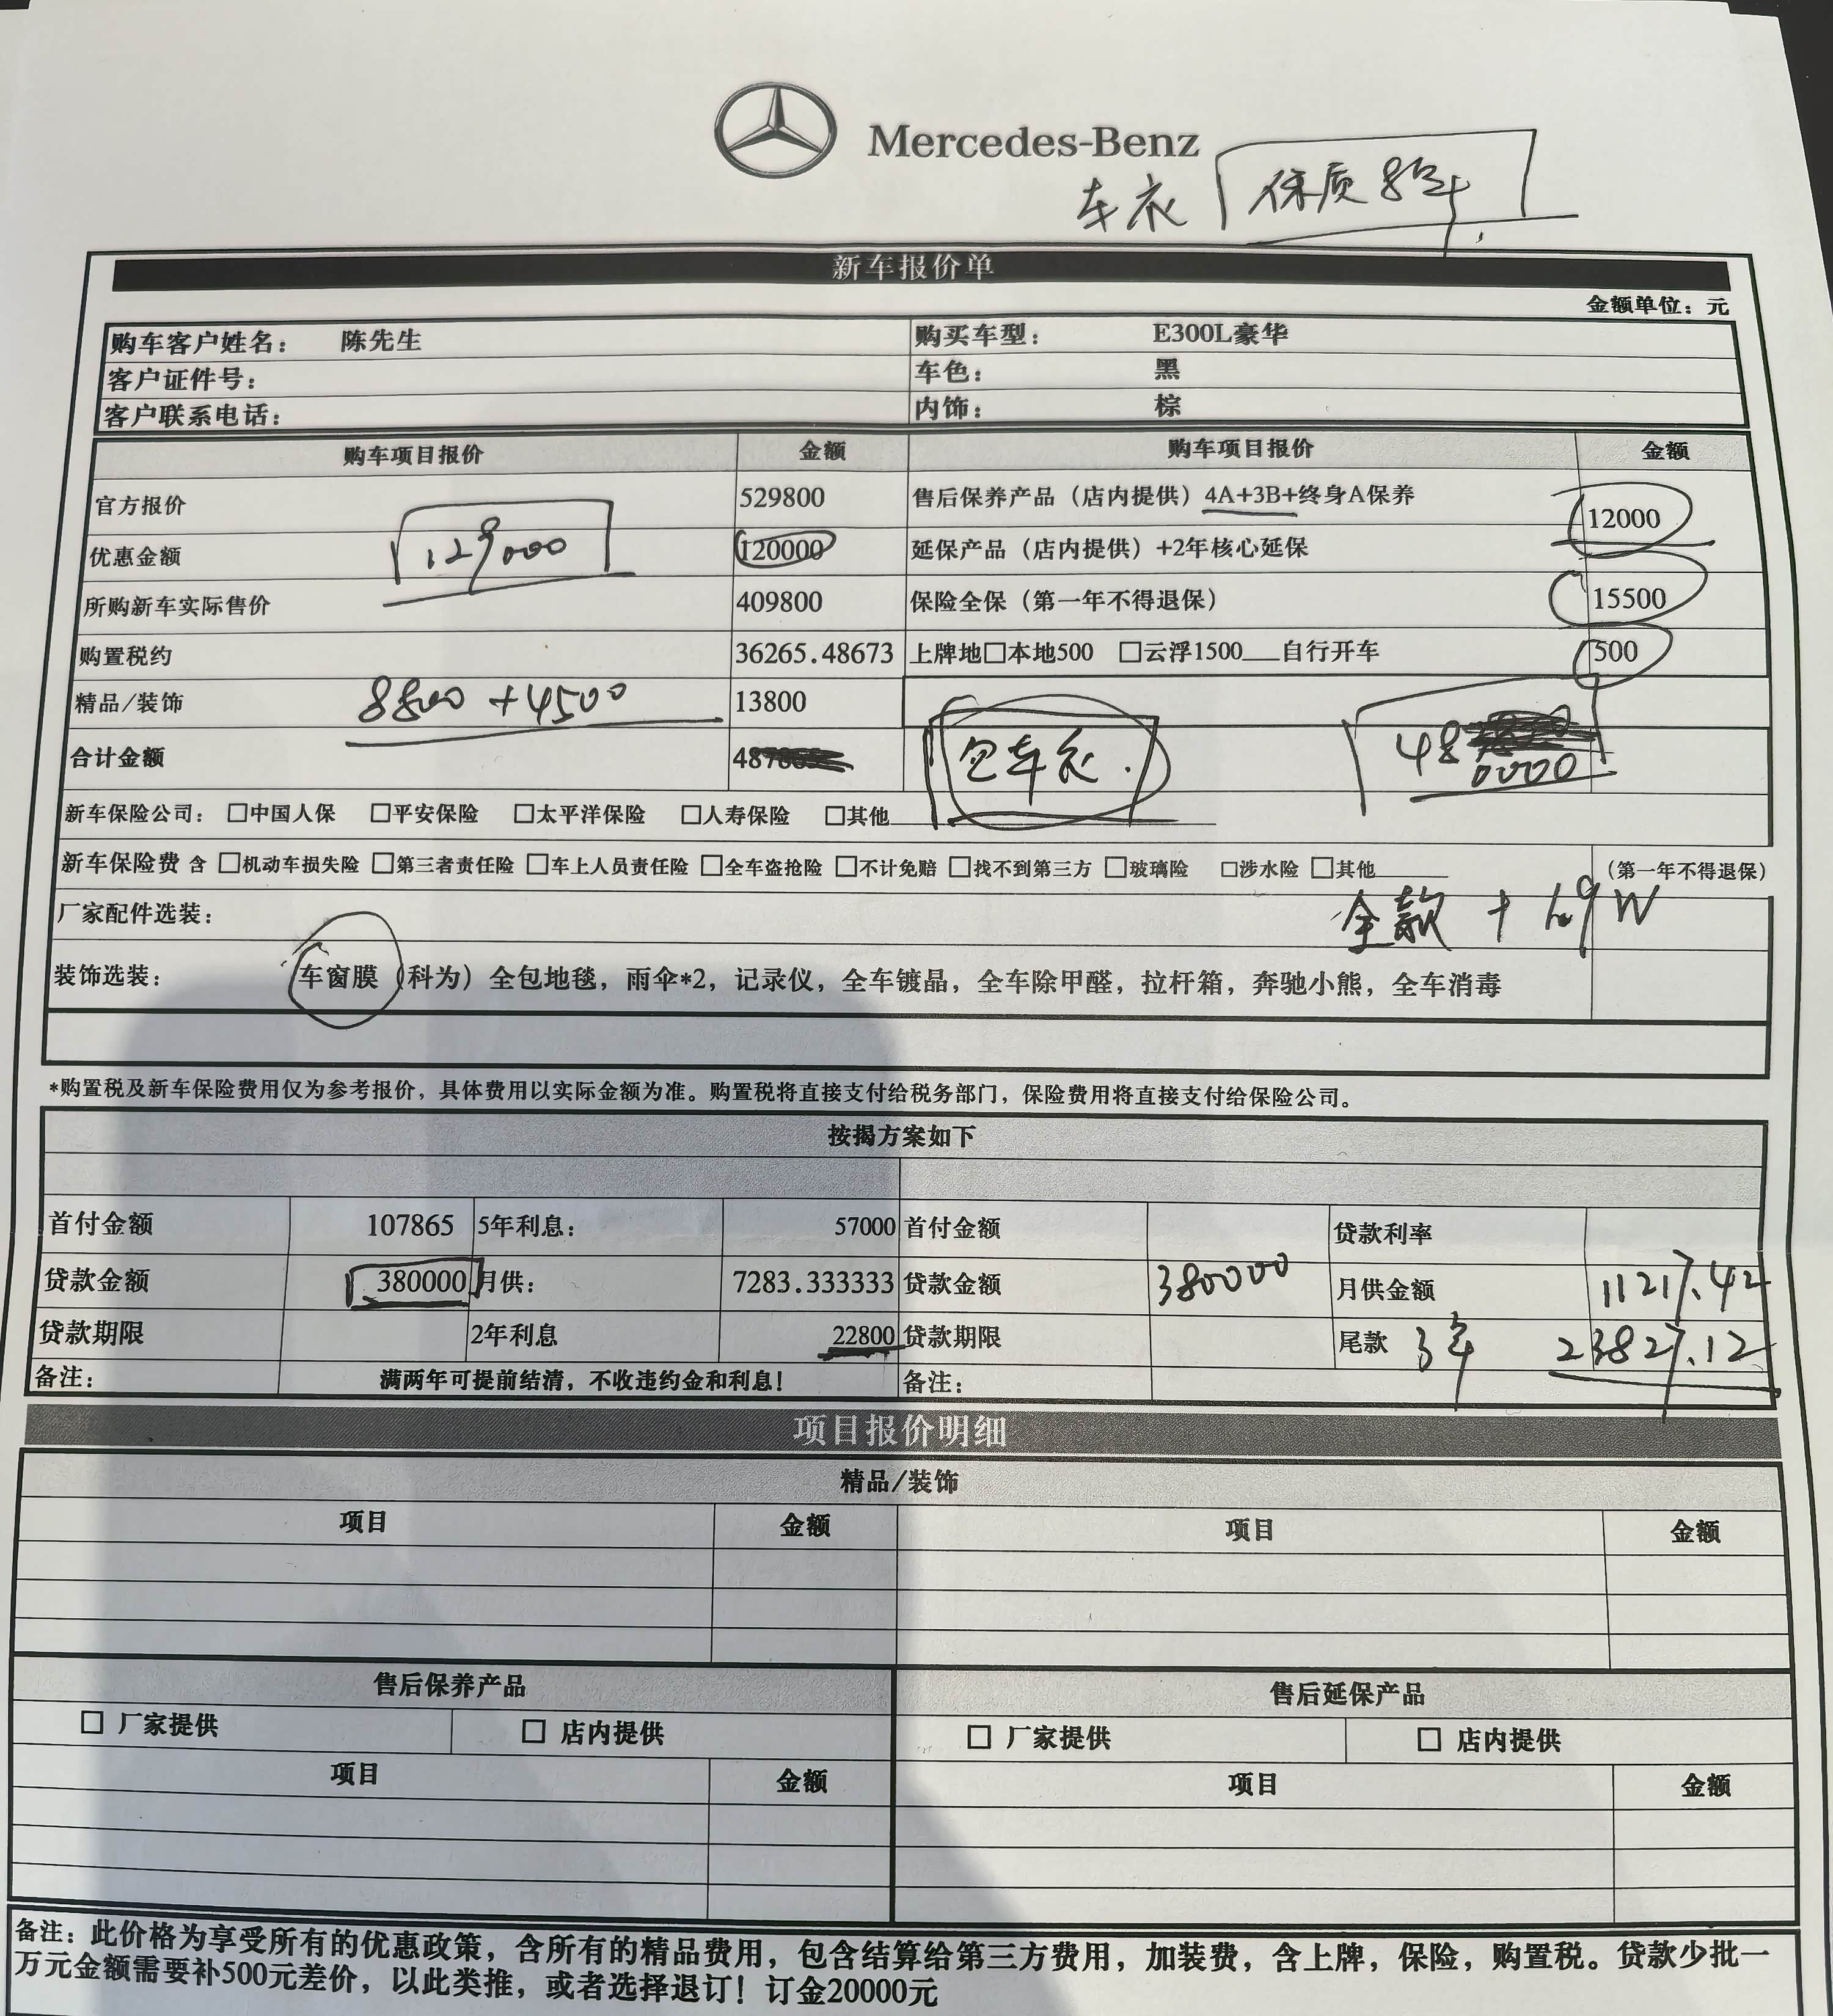 Mercedes-Benz
车衣 保质8年
新车报价单
金额单位：元
购车客户姓名： 陈先生 购买车型： E300L豪华
客户证件号： 车色： 黑
客户联系电话： 内饰： 棕
购车项目报价 金额 购车项目报价 金额
官方报价 529800 售后保养产品（店内提供）4A+3B+终身A保养 12000
优惠金额 129000 120000 延保产品（店内提供）+2年核心延保
所购新车实际售价 409800 保险全保（第一年不得退保） 15500
购置税约 36265.48673 上牌地□本地500 □云浮1500___自行开车 500
精品/装饰 8800+4500 13800
合计金额 包车衣. 480000
新车保险公司：□中国人保 □平安保险 □太平洋保险 □人寿保险 □其他
新车保险费 含 □机动车损失险 □第三者责任险 □车上人员责任险 □全车盗抢险 □不计免赔 □找不到第三方 □玻璃险 □涉水险 □其他 （第一年不得退保）
厂家配件选装： 全款 +
装饰选装： 车窗膜（科为）全包地毯，雨伞*2，记录仪，全车镀晶，全车除甲醛，拉杆箱，奔驰小熊，全车消毒
*购置税及新车保险费用仅为参考报价，具体费用以实际金额为准。购置税将直接支付给税务部门，保险费用将直接支付给保险公司。
按揭方案如下
首付金额 107865 5年利息： 57000 首付金额 贷款利率
贷款金额 380000 月供： 7283.333333 贷款金额 380000 月供金额 11217.42
贷款期限 2年利息 22800 贷款期限 尾款 3年 23827.12
备注： 满两年可提前结清，不收违约金和利息！ 备注：
项目报价明细
精品/装饰
项目 金额 项目 金额
售后保养产品 售后延保产品
□ 厂家提供 □ 店内提供 □ 厂家提供 □ 店内提供
项目 金额 项目 金额
备注：此价格为享受所有的优惠政策，含所有的精品费用，包含结算给第三方费用，加装费，含上牌，保险，购置税。贷款少批一
万元金额需要补500元差价，以此类推，或者选择退订！订金20000元